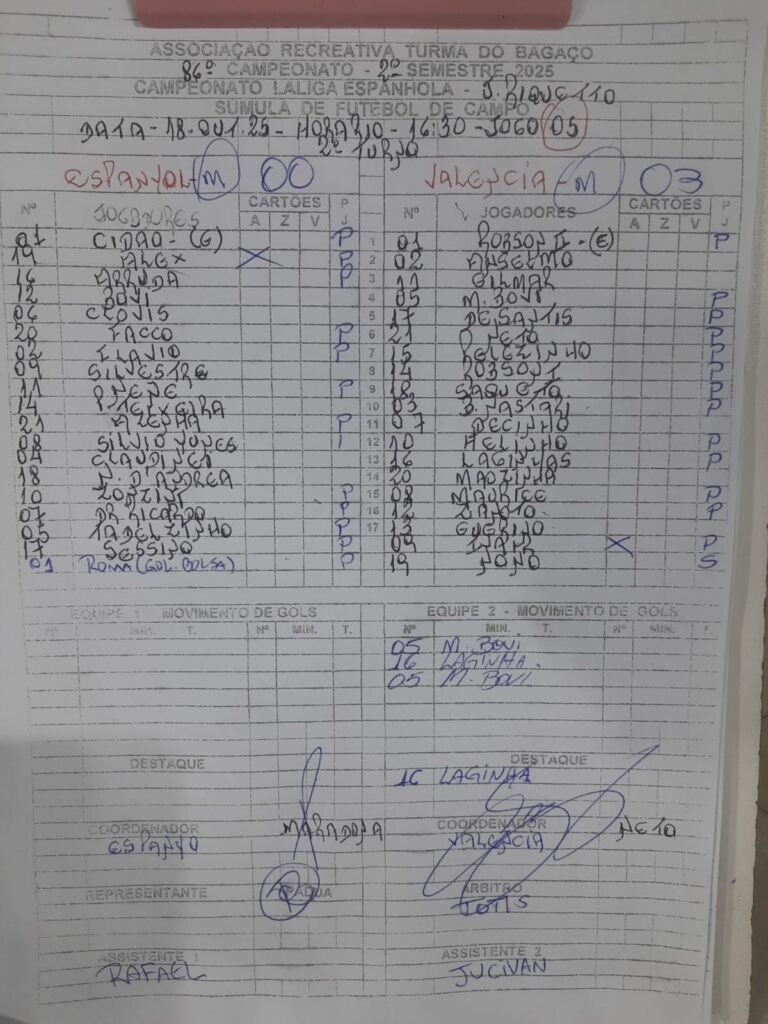 ASSOCIAÇÃO RECREATIVA TURMA DO BAGAÇO
86º CAMPEONATO - 2º SEMESTRE 2025
CAMPEONATO LALIGA ESPANHOLA - J. RIQUETTO
SÚMULA DE FUTEBOL DE CAMPO
DATA - 18.OUT.25 - HORARIO - 16:30 - JOGO 05
2º TURNO
ESPANYOL - M 00 VALENCIA - M 03
Nº JOGADORES CARTÕES A Z V P J Nº JOGADORES CARTÕES A Z V P J
01 CIDÃO - (G) P 1 01 ROBSON II - (E) P
19 ALEX X P 2 02 ANSELMO
16 ARRUDA P 3 11 GILMAR
12 BOVI 4 05 M. BOVI P
06 CLOVIS 5 17 DE SANTIS P
20 FACCO P 6 21 P. NETO P
02 FLAVIO P 7 15 RELEZINHO P
09 SILVESTRE 8 14 ROBSON I P
11 P. NENE P 9 18 P
14 P. TEIXEIRA 10 03 B. NASTARI P
21 AZENHA P 11 07 DECINHO
08 SILVIO NUNES 12 10 HELINHO P
04 CLAUDINEI 13 16 LAGINHAS P
18 N. D'ANDREA 14 20
10 ZONZINI P 15 08 MAURICE P
07 DR RICARDO P 16 12 ZANOTO P
05 TADEUZINHO P 17 13 GUERINO
17 SESSINO P 09 X P
01 ROMA (GOL. BOLSA) P 19 NONO S
EQUIPE 1 MOVIMENTO DE GOLS EQUIPE 2 - MOVIMENTO DE GOLS
Nº MIN. T. Nº MIN. T. Nº MIN. T. Nº MIN. T.
05 M. BOVI
16 LAGINHA.
05 M. BOVI
DESTAQUE DESTAQUE
16 LAGINHA
COORDENADOR MARADONA COORDENADOR NETO
ESPANYO VALENCIA
REPRESENTANTE PADUA ARBITRO
ASSISTENTE 1 ASSISTENTE 2
RAFAEL JUCIVAN